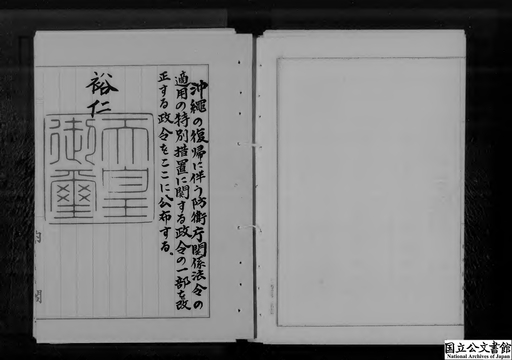 沖縄の復帰に伴う防衛庁関係法令の
適用の特別措置に関する政令の一部を改
正する政令をここに公布する。
裕仁
天皇
御璽
国立公文書館
National Archives of Japan